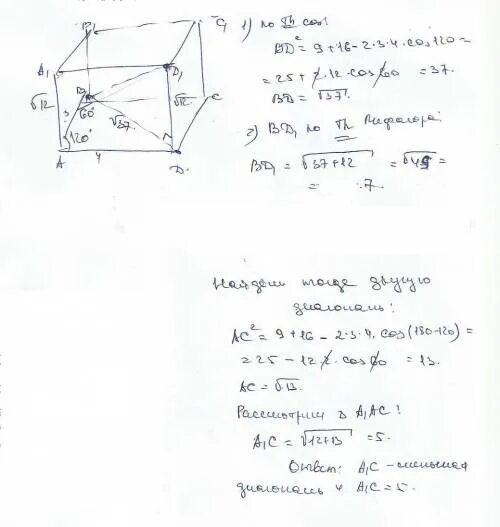 B₁
C₁
A₁
D₁
√12
√12
B
C
3
60°
√37
120°
A
4
D
1) по Th cos
BD² = 9+16-2·3·4·cos120=
= 25+2·12·cos60 = 37.
BD = √37.
2) BD₁ по Th Пифагора
BD₁ = √37+12 = √49 =
= 7.
Найдем тогда другую
диагональ:
AC² = 9+16-2·3·4·cos(180-120)=
= 25-12·2·cos60 = 13.
AC = √13.
Рассмотрим Δ A₁AC:
A₁C = √12+13 = 5.
Ответ: A₁C - меньшая
диагональ и A₁C = 5.